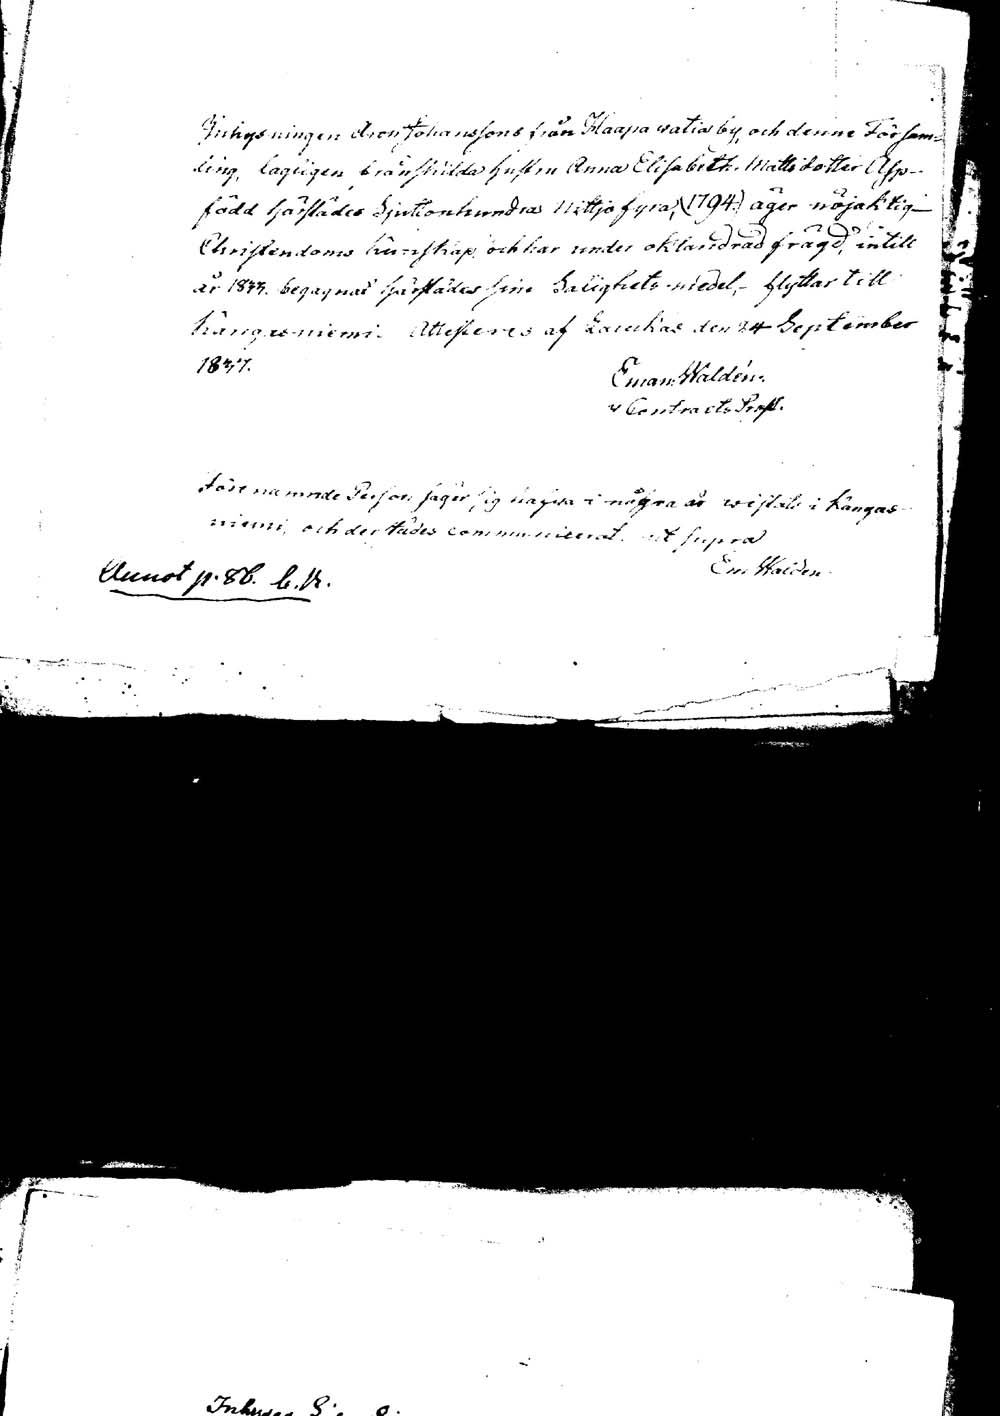 Inhysningen Aron Johanssons från Haapavatia by, och denne Försam-
ling, lagligen frånskilda hustru Anna Elisabeth Mattsdotter Asp-
född härstädes Sjuttonhundra Nittjofyra, (1794.) äger nöjaktig
Christendoms kunskap, och har under oklandrad frägd, intill
år 1833. begagnat härstädes sine Salighets-medel, - flyttar till
Kangasniemi. Attesteres af Lauckas den 24 September
1837.
Eman: Waldén.
v Contracts Prost.
Förenämnde Person säger sig hafva i några år wistats i Kangas-
niemi, och derstädes communicerat. ut supra
Em Walden
Annot p. 86. C. B.
Inhyses